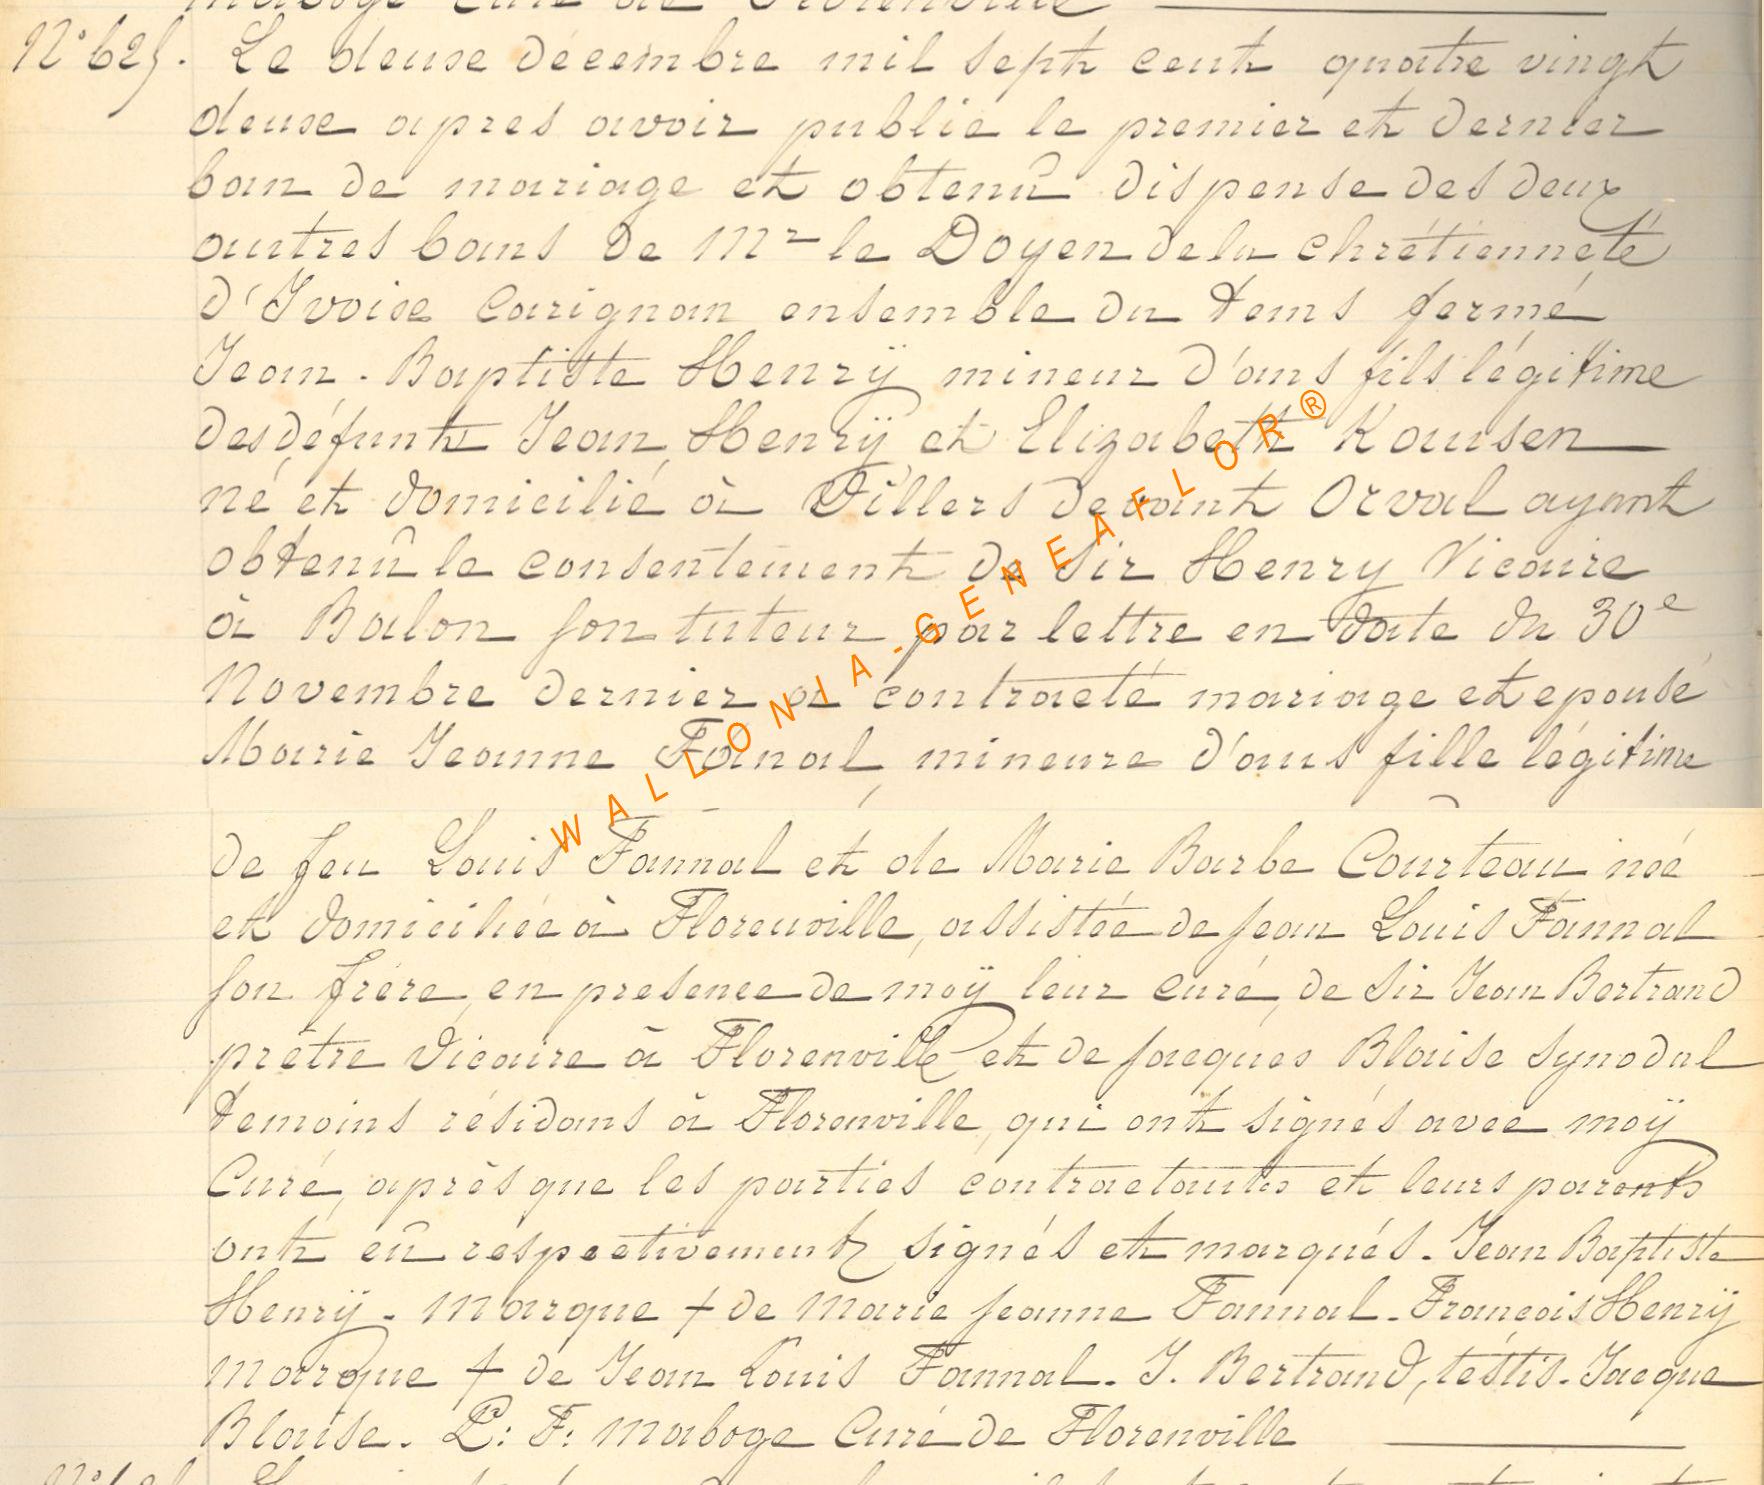 maboge Curé de Florenville
N° 625. Le deuse décembre mil sept cent quatre vingt
deuse apres avoir publié le premier et dernier
ban de mariage et obtenû dispense des deux
autres bans de Mr le Doyen de la chrétienneté
d'Ivoise Carignan ensemble du tems fermé
Jean-Baptiste Henrÿ mineur d'ans fils légitime
des défunts Jean Henrÿ et Elizabeth Kausen
né et domicilié à Villers devant Orval ayant
obtenû le consentement de Sir Henry Vicaire
à Balon son tuteur par lettre en date du 30e
Novembre dernier a contracté mariage et epousé
Marie Jeanne Fanal, mineure d'ans fille légitime
de feu Louis Fannal et de Marie Barbe Courteau née
et domiciliée à Florenville, assistée de jean Louis Fannal
son frére, en presence de moÿ leur curé, de Sir Jean Bertrand
prêtre Vicaire à Florenville et de jacques Blaise Synodal
temoins résidans à Florenville, qui ont signés avec moÿ
Curé, après que les parties contractantes et leurs parents
ont eû respectivement signés et marqués. Jean Baptiste
Henrÿ - Marque + de Marie jeanne Fannal. Francois Henrÿ
Marque + de Jean Louis Fannal. J. Bertrand, téstis. Jacque
Blaise. L: F: Maboge Curé de Florenville
WALLONIA-GENEAFLOR®